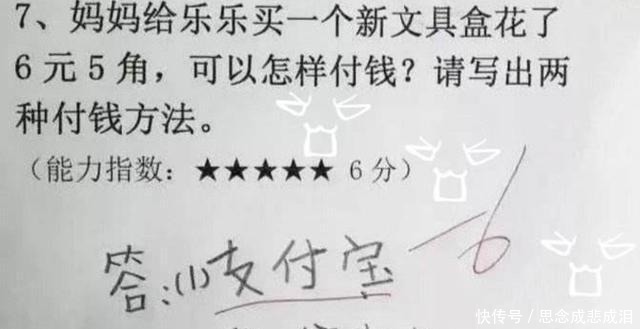 7、妈妈给乐乐买一个新文具盒花了
6元5角，可以怎样付钱？请写出两
种付钱方法。
（能力指数：★★★★★ 6分）
答：(1)支付宝 -6
快传号 / 思念成悲成泪